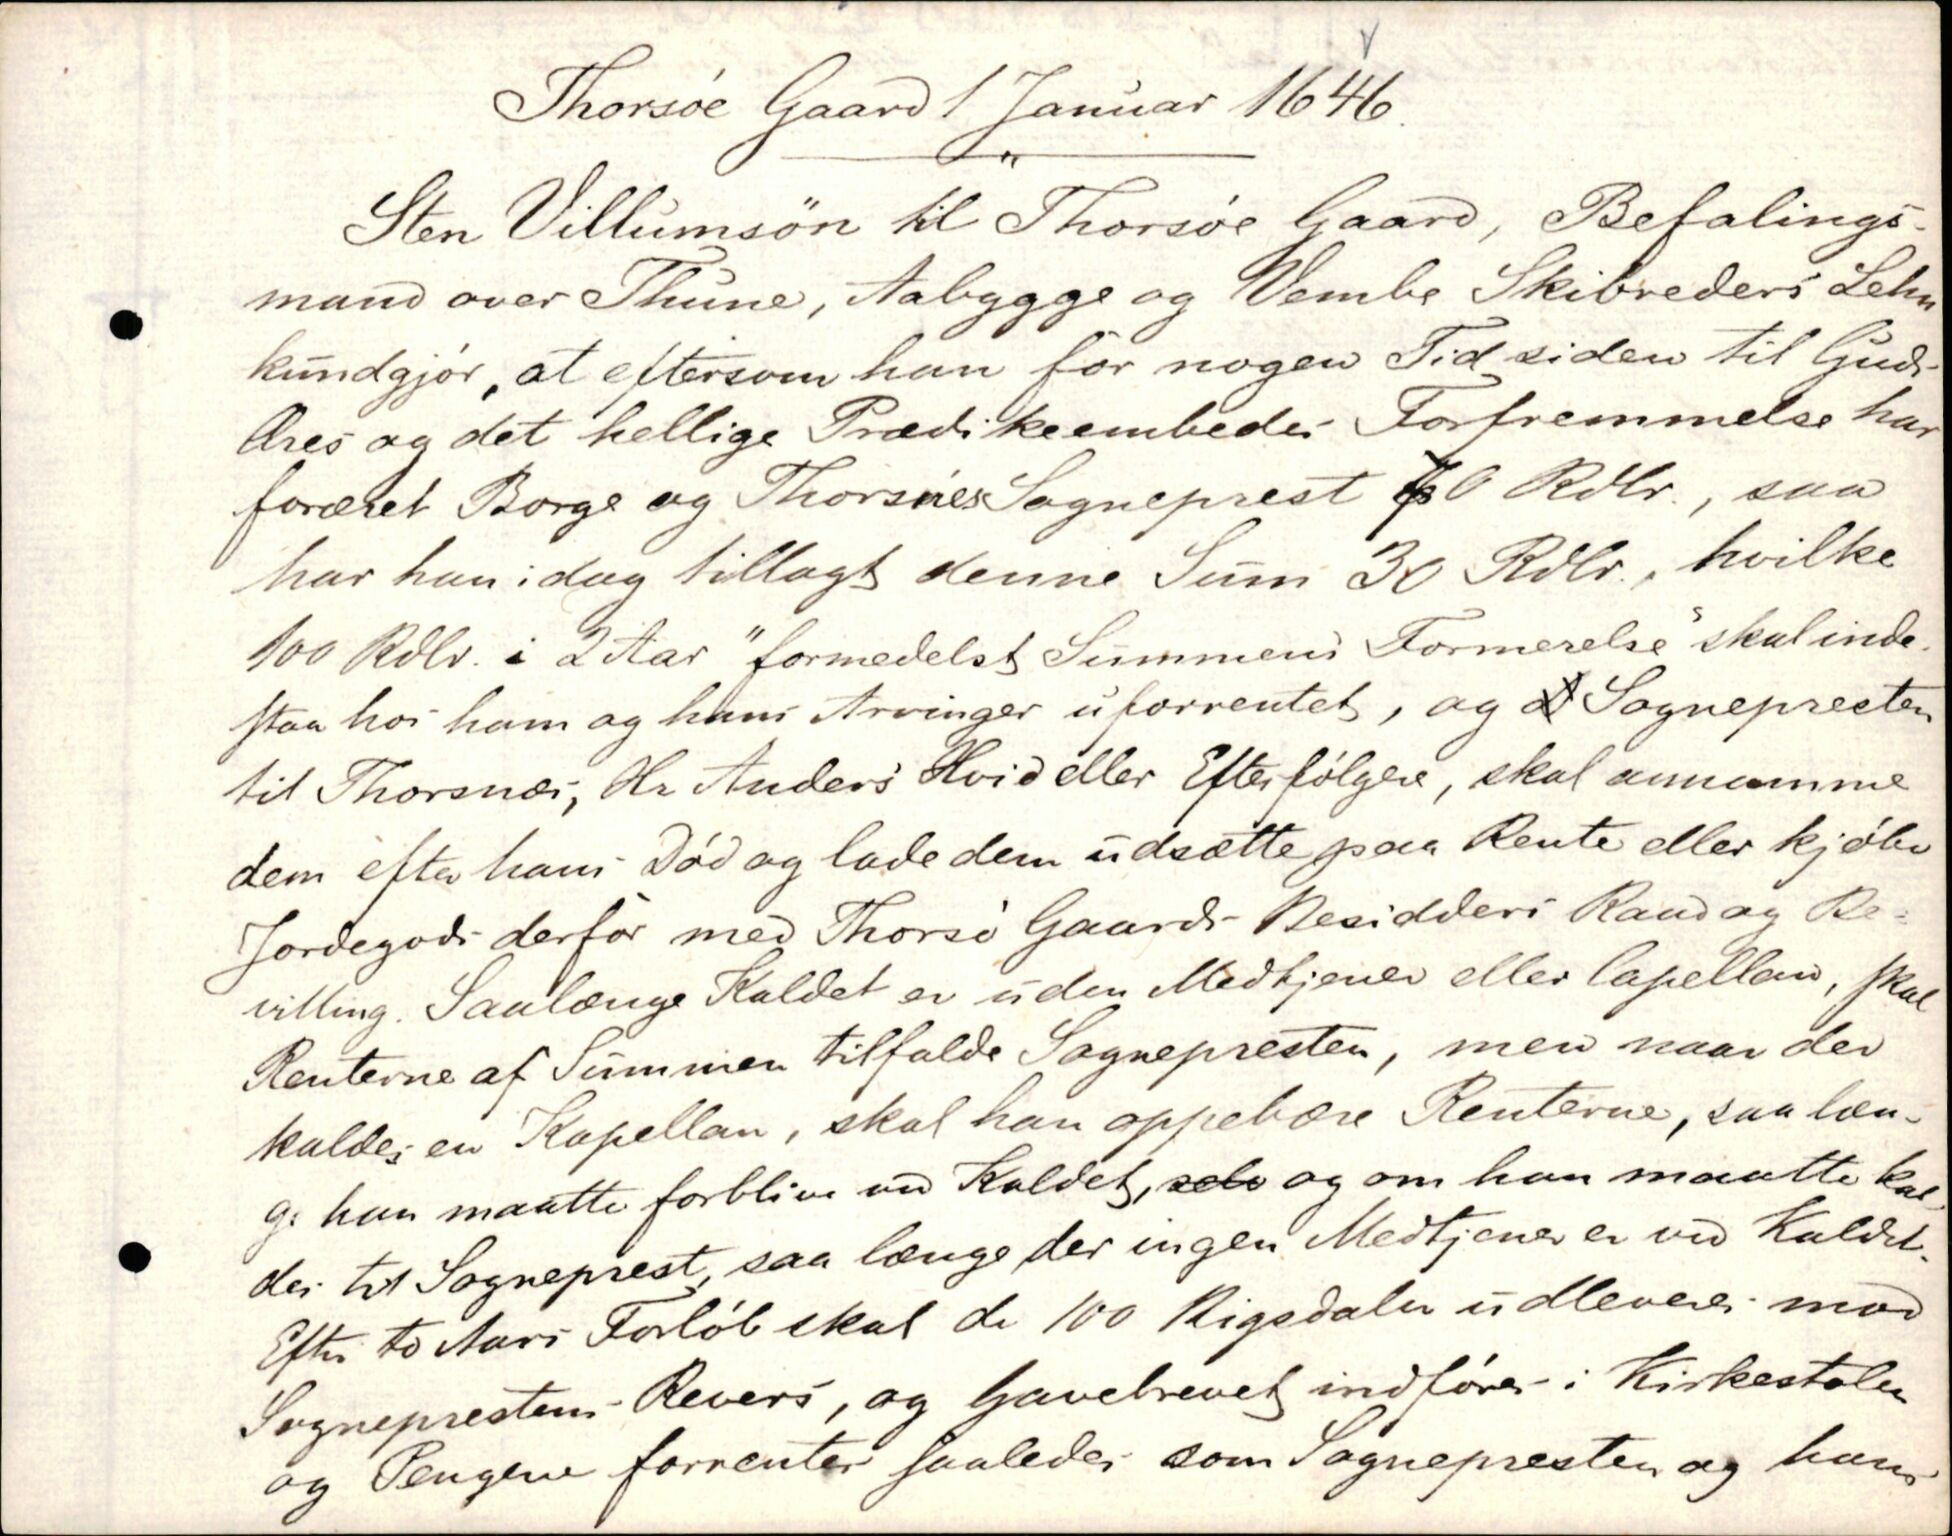 Thorsöe Gaard 1 Januar 1646.
Sten Villumsön til Thorsöe Gaard, Befalings-
mand over Thune, Aabygge og Vembe Skibreders Lehn
kundgjör, at eftersom han for nogen Tid siden til Guds
Æres og det hellige Prædikeembedes Forfremmelse har
foræret Borge og Thorsnes Sogneprest 70 Rdlr., saa
har han idag tillagt denne Sum 30 Rdlr., hvilke
100 Rdlr. i 2 Aar "formedelst Summens Formerelse" skal inde-
staa hos ham og hans Arvinger uforrentet, og Sognepresten
til Thorsnæs, Hr Anders Hvid eller Efterfölgere, skal annamme
dem efter hans Död og lade dem udsætte paa Rente eller kjöbe
Jordegods derför med Thorsö Gaards Besidders Raad og Be-
villing. Saalænge Kaldet er uden Medtjener eller Capellan, skal
Renterne af Summen tilfalde Sognepresten, men naar der
kaldes en Kapellan, skal han oppebære Renterne, saa læn-
ge han maatte forblive ved Kaldet, og om han maatte kal-
des til Sogneprest, saa længe der ingen Medtjener er ved Kaldet.
Efter to Aars Forlöb skal de 100 Rigsdaler udleveres mod
Sogneprestens Revers, og Gavebrevet indföres i Kirkestolen
og Pengene forrentes saaledes som Sognepresten og hans